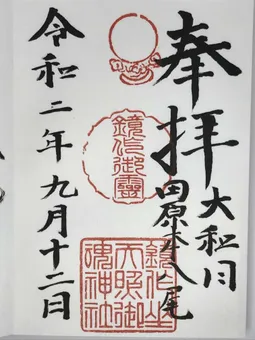 奉拝
大和国
田原本八尾
鏡作御靈
鏡作坐
天照御
魂神社
令和二年九月十二日